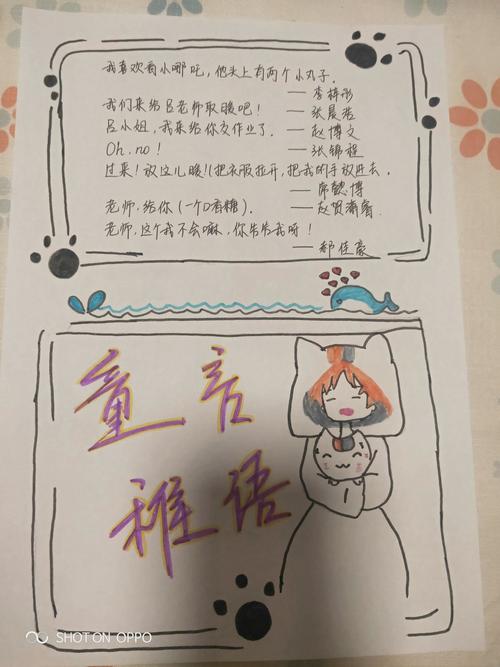 我喜欢看小哪吒，他头上有两个小丸子．
— 李梓彤
我们来给吕老师取暖吧！ — 张晨浩
吕小姐，我来给你交作业了． — 赵博文
Oh, no！ — 张锦程
过来！放这儿暖！(把衣服拉开，把我的手放进去．
— 席懿博
老师，给你（一个口香糖）． — 赵贺
老师，这个我不会嘛，你告告我呀！
— 郝佳豪
童言
稚语
SHOT ON OPPO